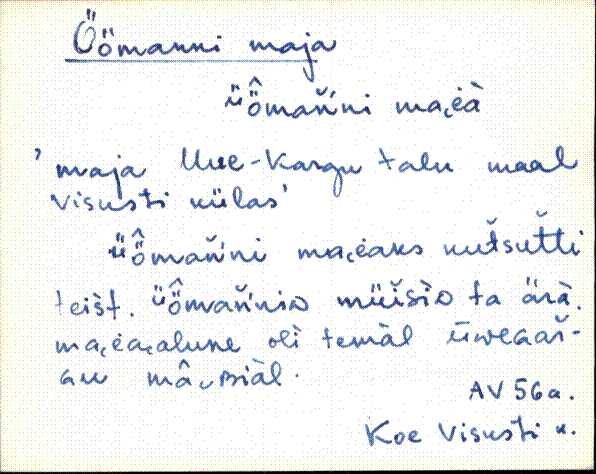 Öömanni maja
üö̂mań̆ni ma˛ėà
’maja Uue-Kargu talu maal
Visusti külas’
üö̂mań̆ni ma˛ėaks kutsut̆ti
teišt. üö̂mań̆niɒ müišiɒ ta ärà.
ma˛ėa˛alune oli temàl
au mâ˛ piàl.
AV 56a.
Koe Visusti k.